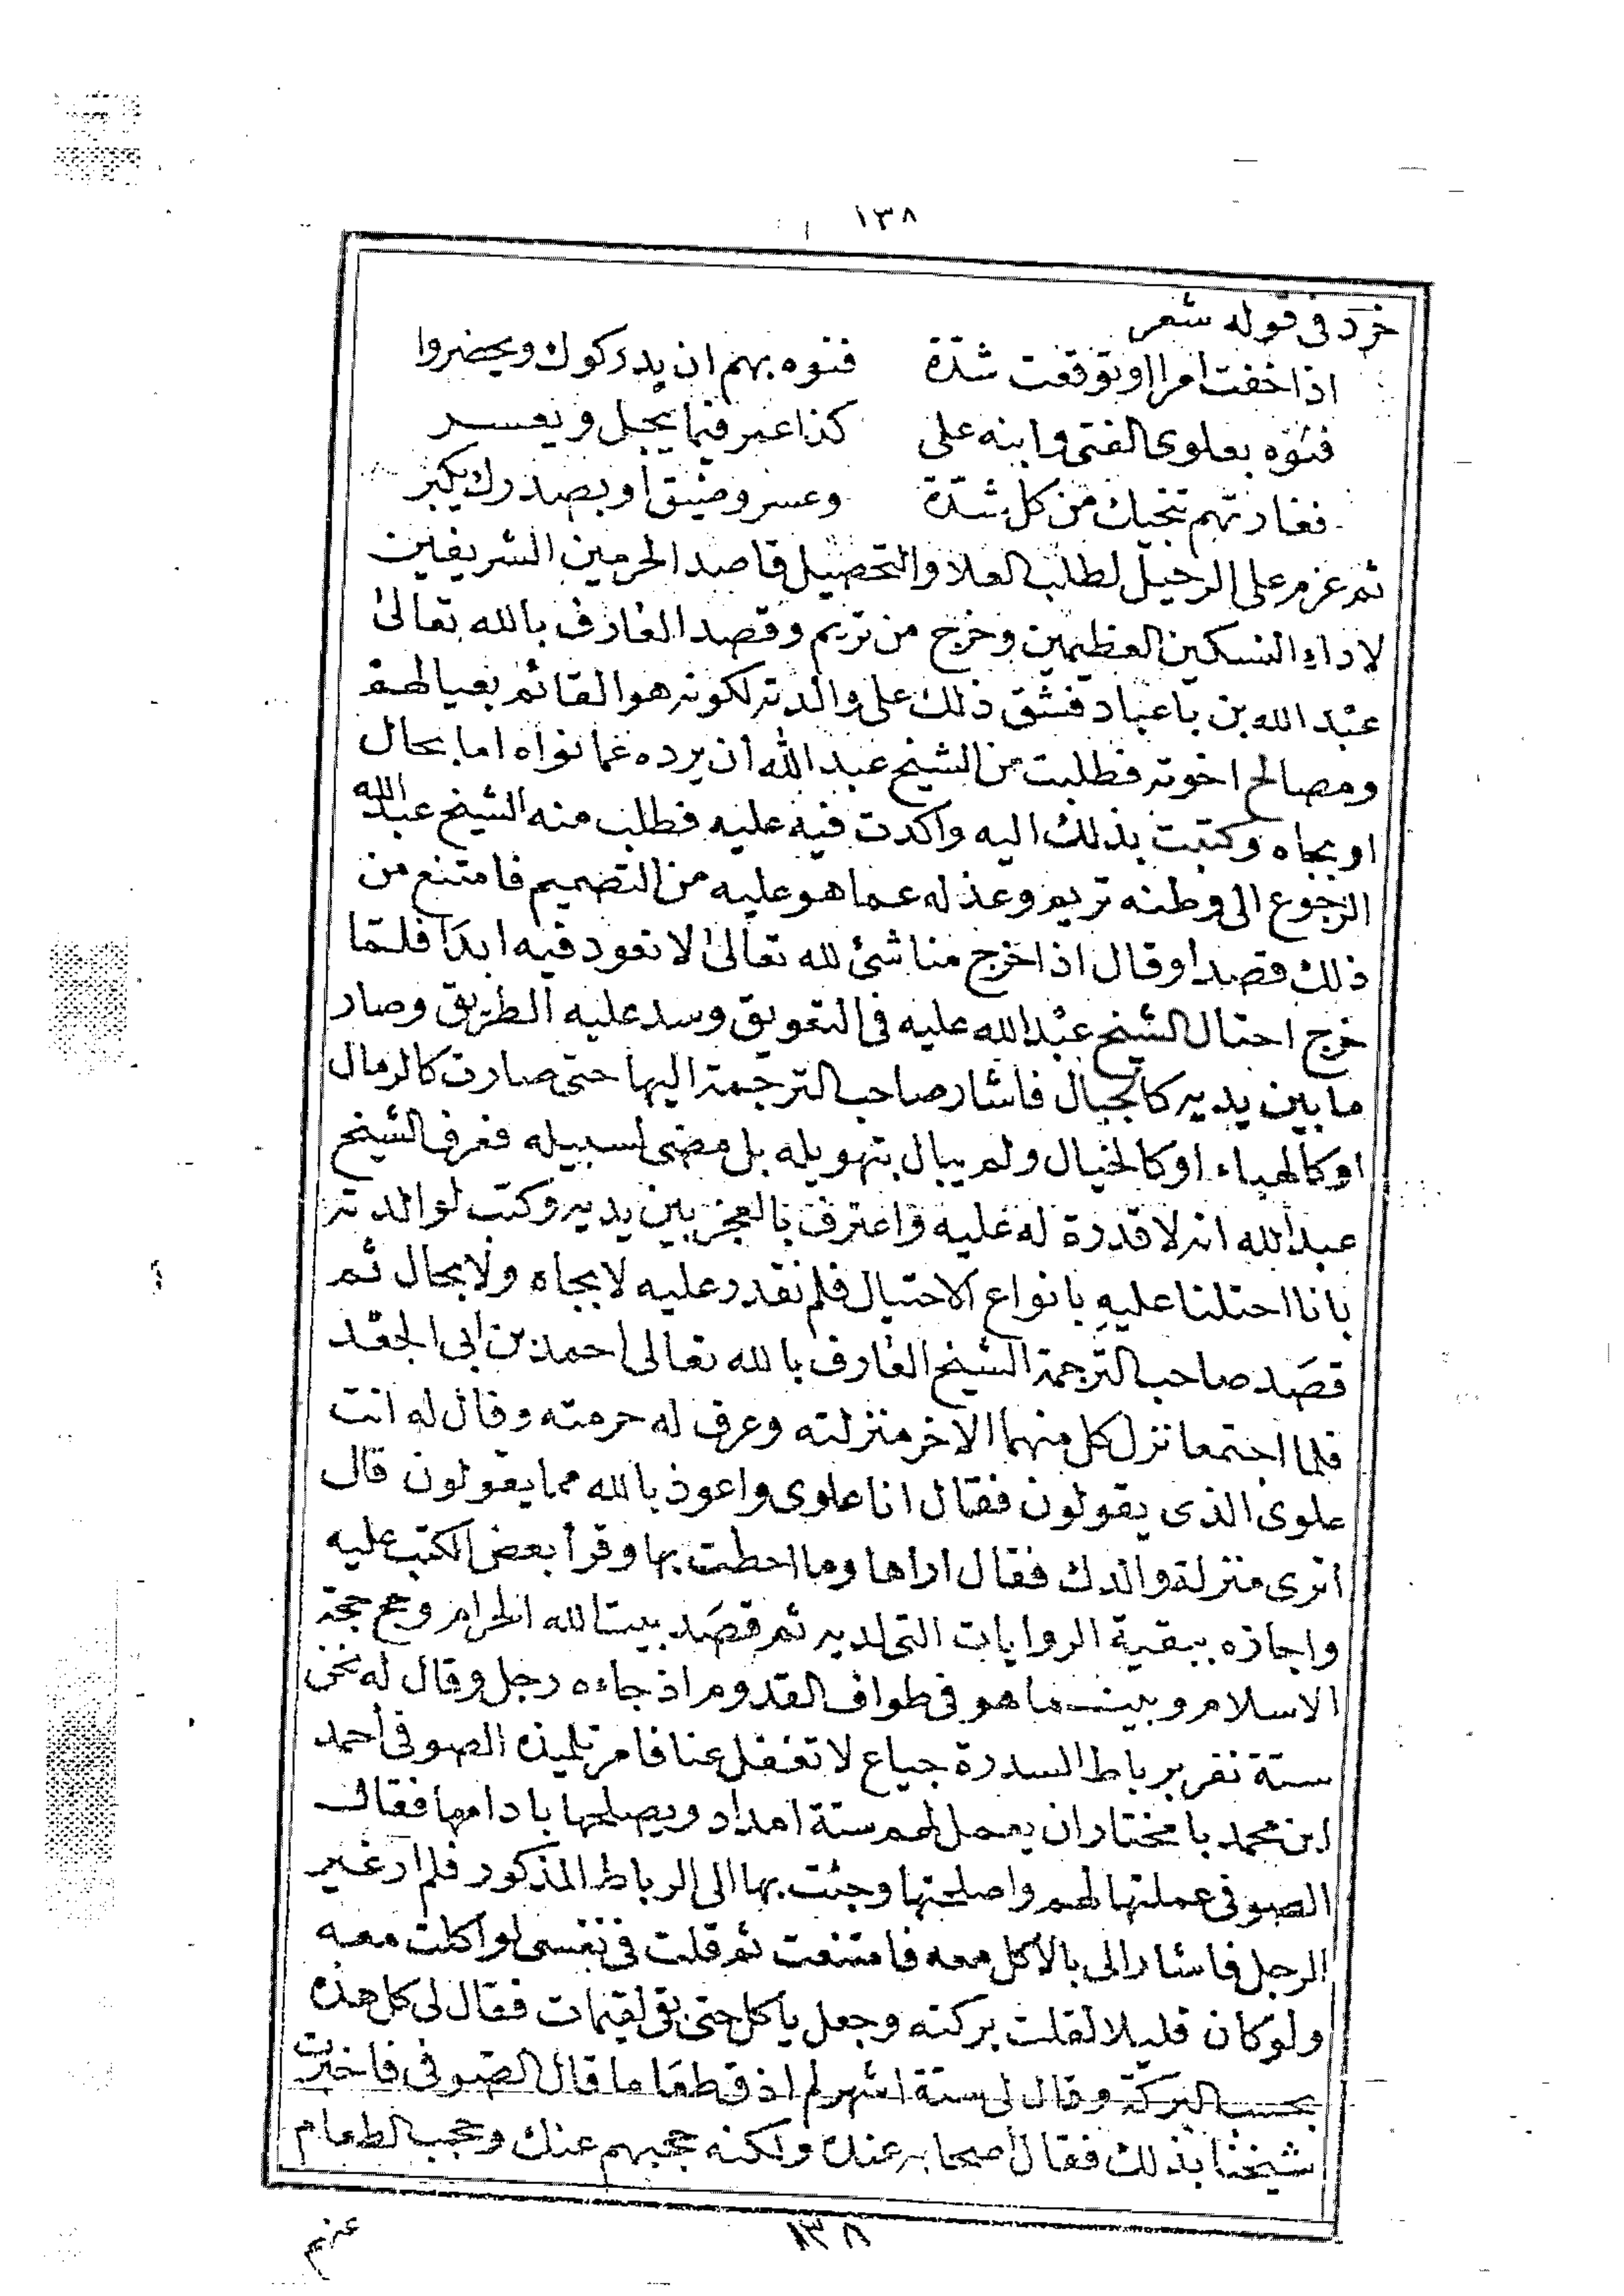 ١٣٨
خرد فى قوله شعر
اذا خفت امرا او توقعت شدّة فنوه بهم ان يدركوك ويحضروا
فنوّه بعلوى الفتى وابنه على كذا عمر فيما يجل ويعسر
فغارتهم تنجيك من كل شدّة وعسر وضيق او بصدرك يكبر
ثم عزم على الرحيل لطلب العلا والتحصيل قاصد الحرمين الشريفين
لاداء النسكين العظيمين وخرج من تريم وقصد العارف بالله تعالى
عبد الله بن باعباد فشق ذلك على والدته لكونه هو القائم بعيالهم
ومصالح اخوته فطلبت من الشيخ عبد الله أن يرده عما نواه اما بحال
او بجاه وكتبت بذلك اليه واكدت فيه عليه فطلب منه الشيخ عبد الله
الرجوع الى وطنه تريم وعذله عما هو عليه من التصميم فامتنع من
ذلك قصدا وقال اذا خرج منا شئ لله تعالى لا نعود فيه ابدا فلما
خرج احتال الشيخ عبد الله عليه فى التعويق وسد عليه الطريق وصار
ما بين يديه كالجبال فاشار صاحب الترجمة اليها حتى صارت كالرمال
او كالهباء او كالخيال ولم يبال بتهويله بل مضى لسبيله فعرف الشيخ
عبد الله انه لا قدرة له عليه واعترف بالعجز بين يديه وكتب لوالدته
بانا احتلنا عليه بانواع الاحتيال فلم نقدر عليه لا بجاه ولا بحال ثم
قصد صاحب الترجمة الشيخ العارف بالله تعالى احمد بن ابى الجعد
فلما اجتمعا نزل كل منهما الاخر منزلته وعرف له حرمته وقال له انت
علوى الذى يقولون فقال انا علوى واعوذ بالله مما يقولون قال
اترى منزلة والدك فقال اراها وما احطت بها وقرأ بعض الكتب عليه
واجازه ببقية الروايات التى لديه ثم قصد بيت الله الحرام وحج حجة
الاسلام وبينما هو فى طواف القدوم اذ جاءه رجل وقال له نحن
ستة نفر برباط السدرة جياع لا تغفل عنا فامر تلميذه الصوفى احمد
ابن محمد با مختار ان يعمل لهم ستة امداد ويصلحها بادامها فقال
الصوفى عملتها لهم واصلحتها وجئت بها الى الرباط المذكور فلم ار غير
الرجل فاشار الى بالاكل معه فامتنعت ثم قلت فى نفسى لو اكلت معه
ولو كان قليلا لقلت بركته وجعل ياكل حتى بقى لقيمات فقال لى كل هذه
بحسب البركة وقال لى ستة اشهر لم اذق طعاما قال الصوفى فاخبرت
شيخنا بذلك فقال اصحابه عندك ولكنه حجبهم عنك وحجب الطعام
١٣٨
عنهم